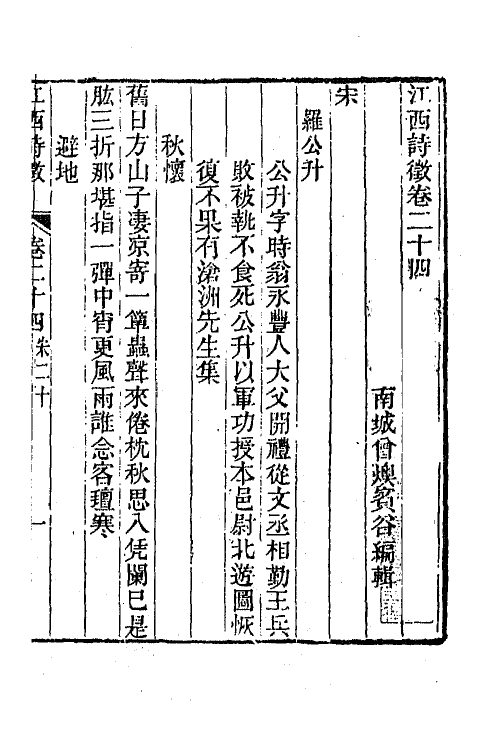 江西詩徵卷二十四
南城曾燠賓谷編輯
宋
羅公升
公升字時翁永豐人大父開禮從文丞相勤王兵
敗被執不食死公升以軍功授本邑尉北遊圖恢
復不果有滄洲先生集
秋懷
舊日方山子凄凉寄一簞蟲聲來倦枕秋思入凭闌已是
肱三折那堪指一彈中宵更風雨誰念客氊寒
避地
江西詩徵
卷二十四 宋二十
一